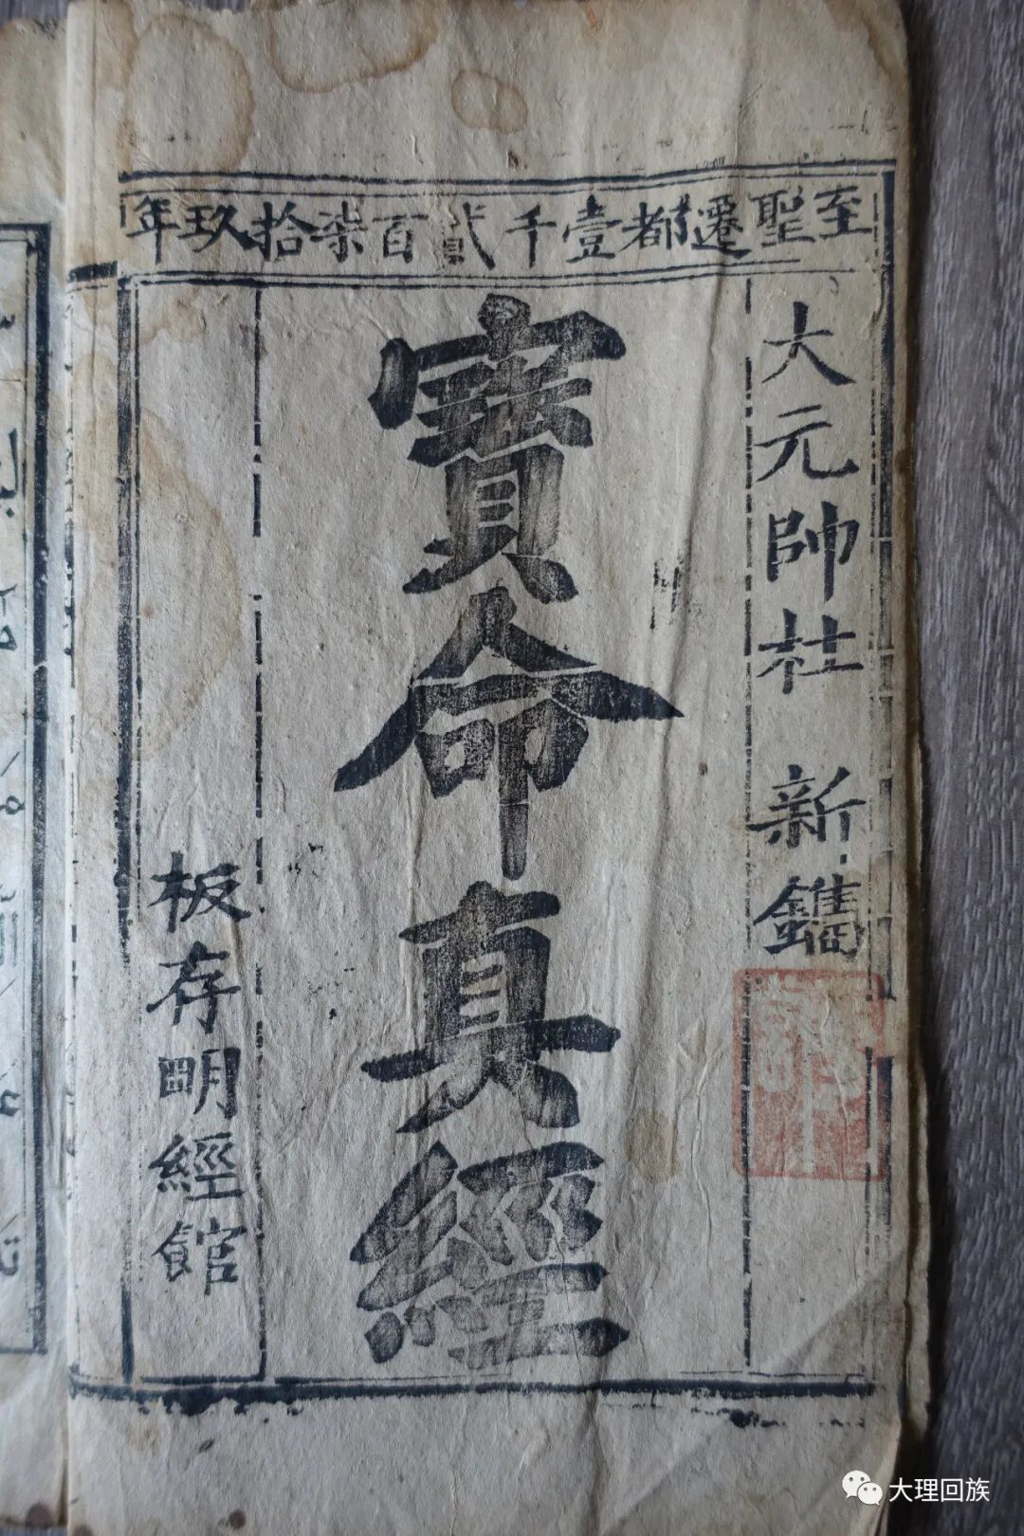 至聖遷都壹千貳百柒拾玖年
大元帥杜 新鐫
寶命真經
板存明經館
大理回族